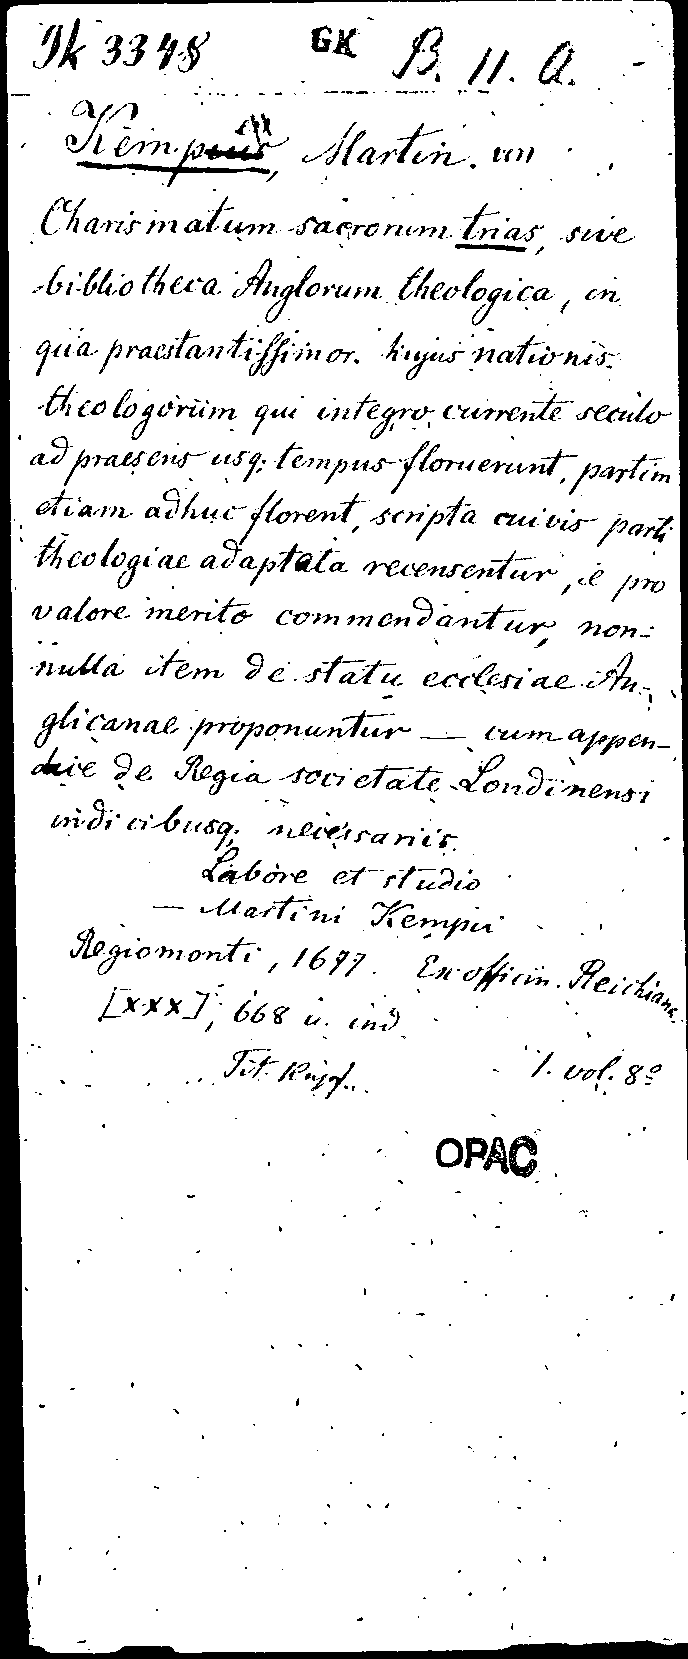 Jk 3348 GK B. 11. A.
Kempen, Martin. von
Charismatum sacrorum trias, sive
bibliotheca Anglorum theologica, in
qua praestantissimor. hujus nationis
theologorum qui integro currente seculo
ad praesens usq; tempus floruerunt, partim
etiam adhuc florent, scripta cuivis parti
theologiae adaptata recensentur, e pro
valore merito commendantur, non-
nulla item de statu ecclesiae An-
glicanae proponuntur — cum appen-
dice de Regia societate Londinensi
indicibusq; necessariis.
Labore et studio
— Martini Kempii
Regiomonti, 1677. Ex officin. Reichiana.
[xxx], 668 u. ind
Tit. Kupf. 1. vol. 8º
OPAC